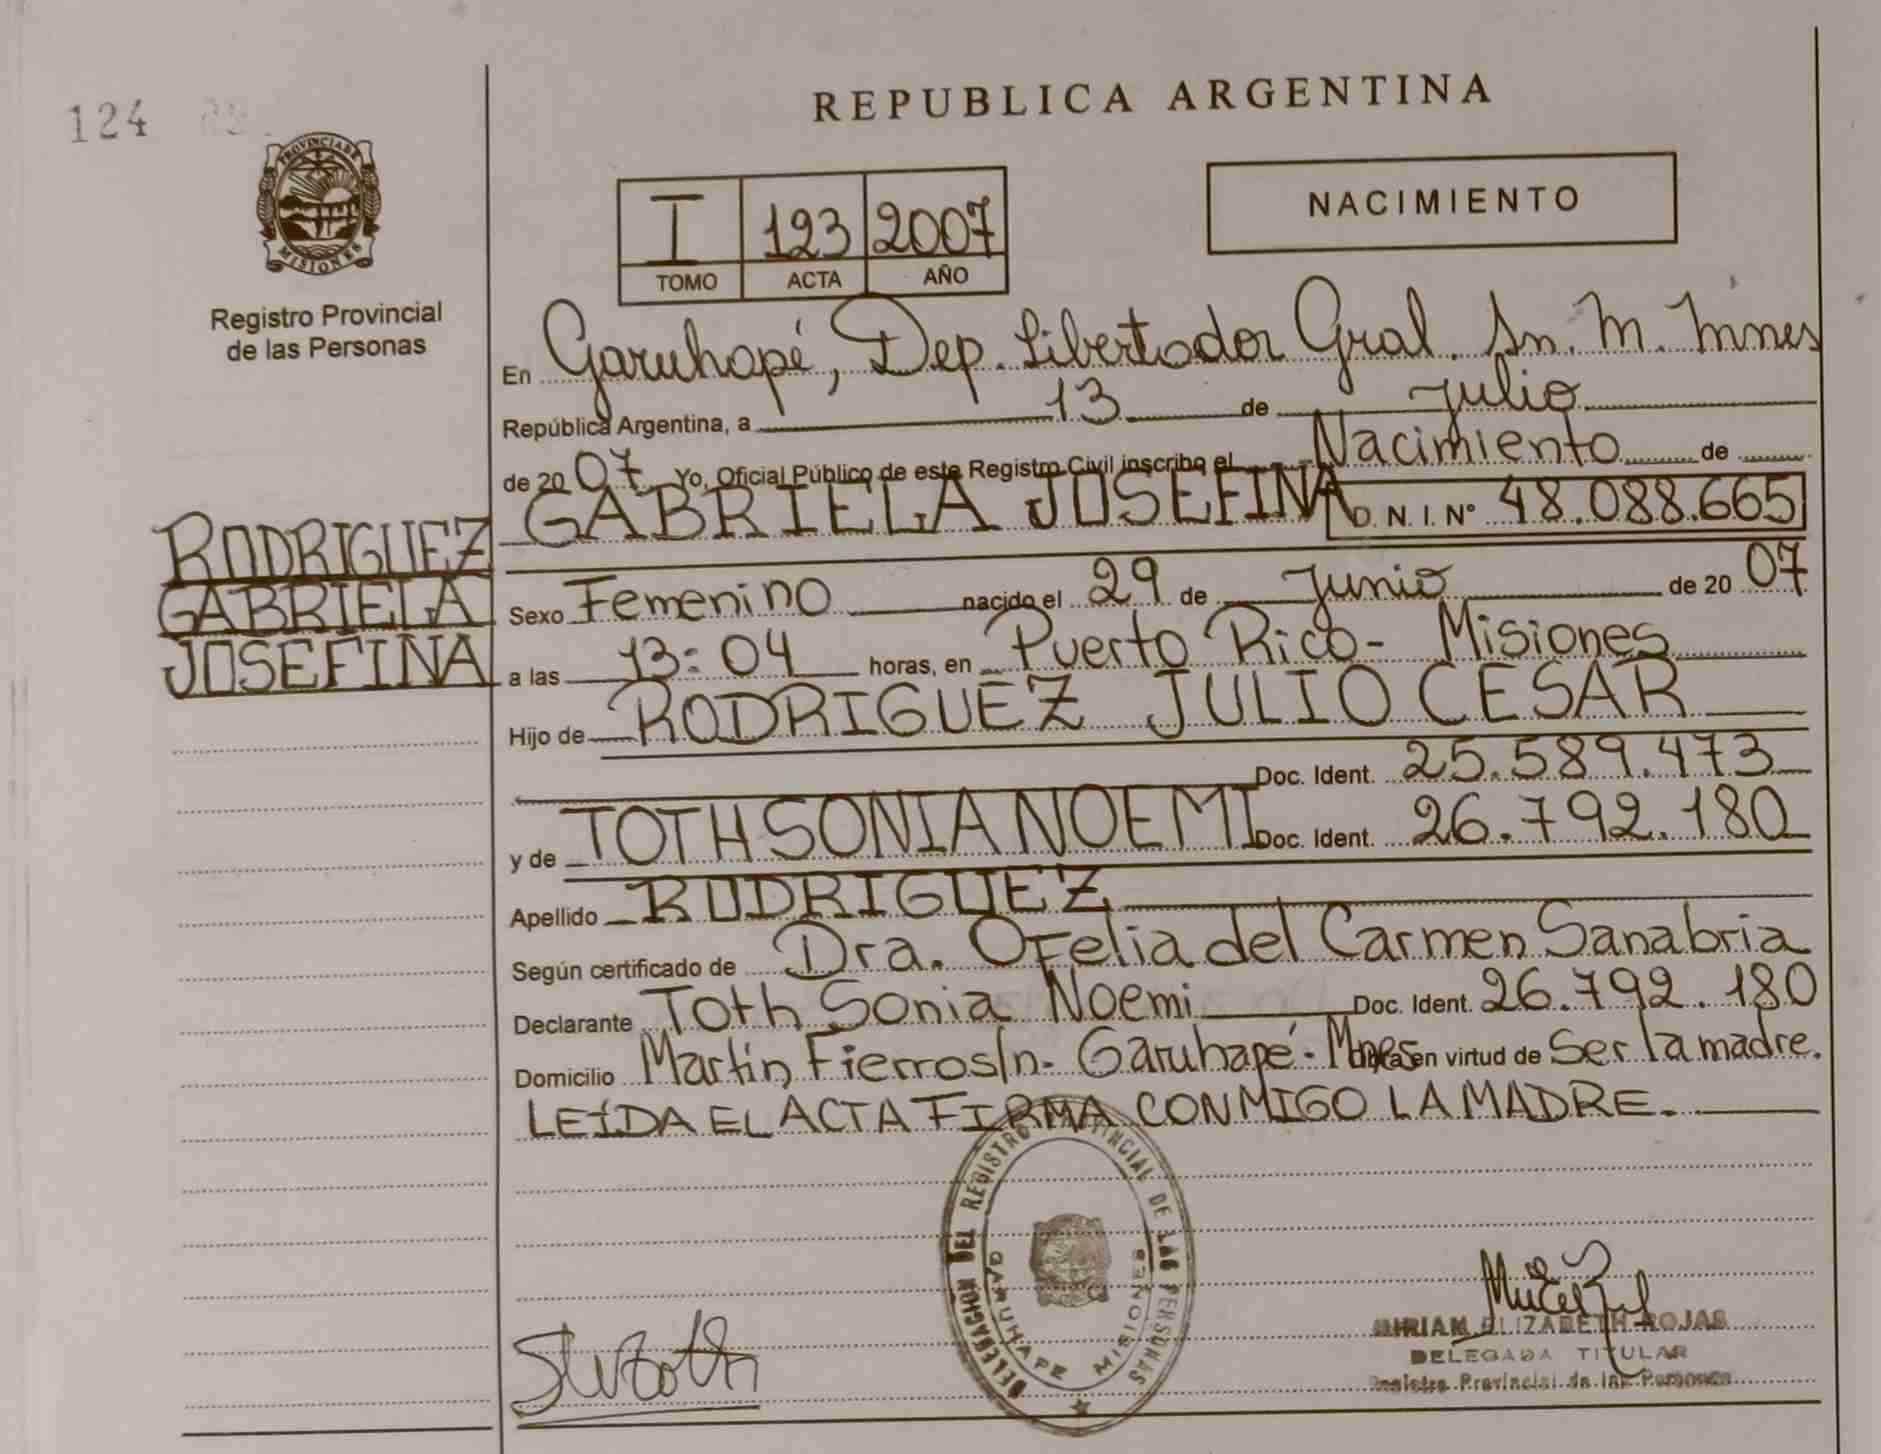 124
REPUBLICA ARGENTINA
PROVINCIA DE
MISIONES
Registro Provincial
de las Personas
I 123 2007
TOMO ACTA AÑO
NACIMIENTO
En Garuhapé, Dep. Libertador Gral. Sn. M. Mnes
República Argentina, a 13 de julio
de 2007 Yo, Oficial Público de este Registro Civil inscribo el Nacimiento de
GABRIELA JOSEFINA D. N. I. Nº 48.088.665
RODRIGUEZ
GABRIELA
JOSEFINA
Sexo Femenino nacido el 29 de Junio de 2007
a las 13:04 horas, en Puerto Rico- Misiones
Hijo de RODRIGUEZ JULIO CESAR
Doc. Ident. 25.589.473
y de TOTH SONIA NOEMI Doc. Ident. 26.792.180
Apellido RODRIGUEZ
Según certificado de Dra. Ofelia del Carmen Sanabria
Declarante Toth Sonia Noemi Doc. Ident. 26.792.180
Domicilio Martín Fierro s/n- Garuhapé- Mnes en virtud de Ser la madre.
LEÍDA EL ACTA FIRMA CONMIGO LA MADRE.
DELEGACION DEL REGISTRO PROVINCIAL DE LAS PERSONAS
GARUHAPE MISIONES
MIRIAM ELIZABETH ROJAS
DELEGADA TITULAR
Registro Provincial de las Personas